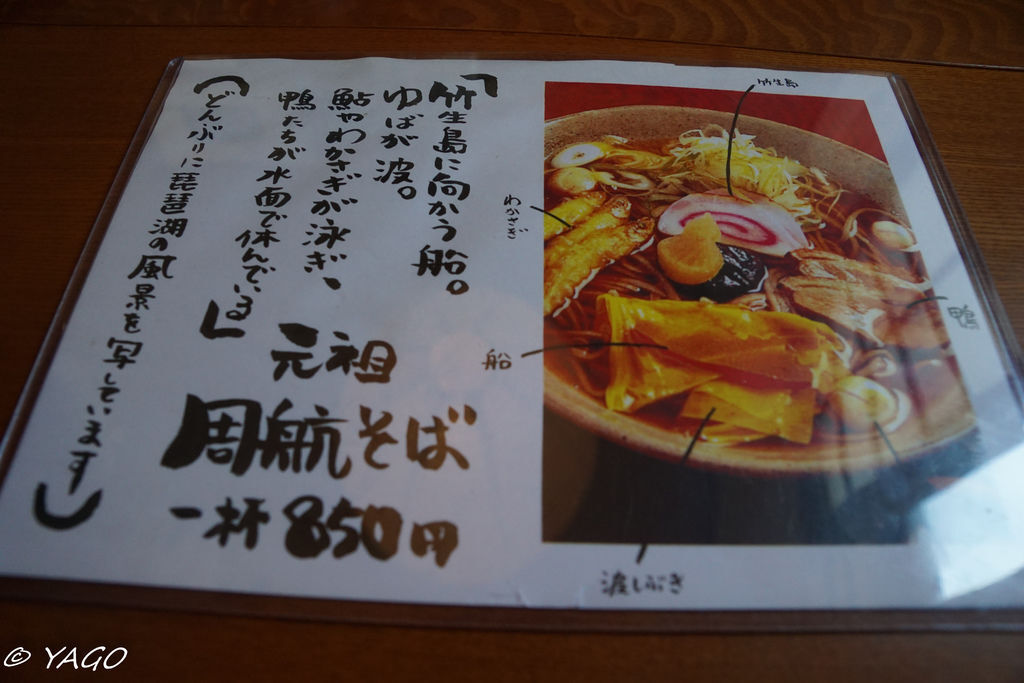 「竹生島に向かう船。
ゆばが波。
鮎やわかさぎが泳ぎ、
鴨たちが水面で休んでいる」
(どんぶりに琵琶湖の風景を写しています)
元祖
周航そば
一杯 850円
竹生島
わかさぎ
船
鴨
波しぶき
© YAGO